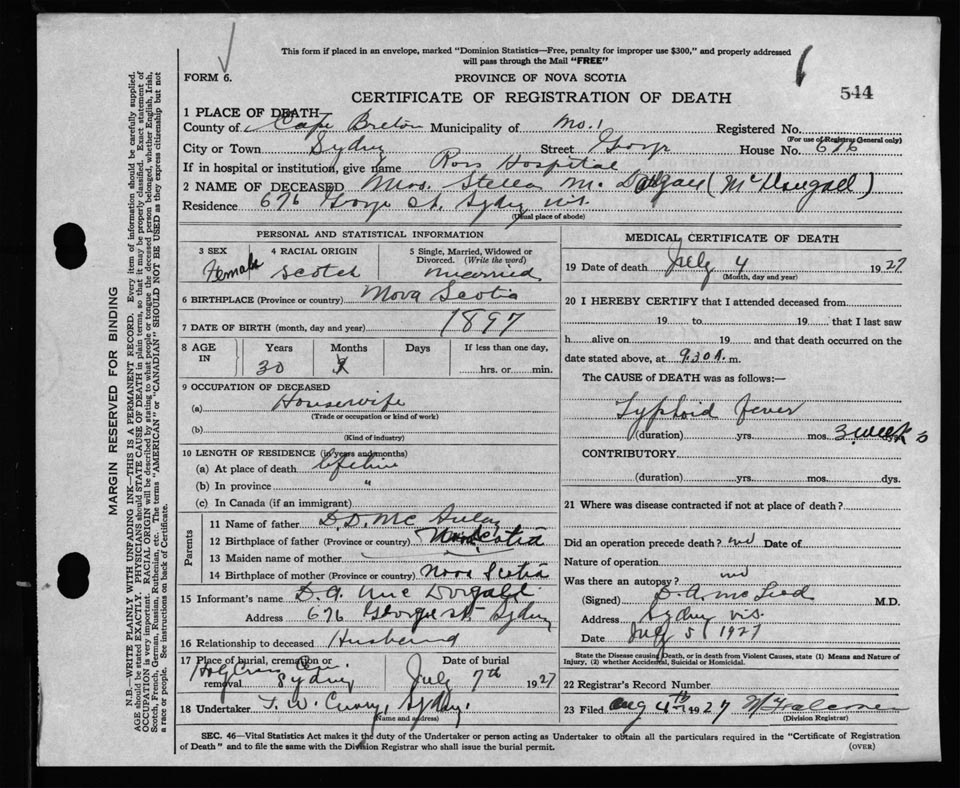 This form if placed in an envelope, marked "Dominion Statistics—Free, penalty for improper use $300," and properly addressed
will pass through the Mail "FREE"
FORM 6.
PROVINCE OF NOVA SCOTIA
CERTIFICATE OF REGISTRATION OF DEATH
544
1 PLACE OF DEATH
County of Cape Breton Municipality of No. 1 Registered No.
(For use of Registrar General only)
City or Town Sydney Street George House No. 676
If in hospital or institution, give name Ross Hospital
2 NAME OF DECEASED Mrs. Stella M. (McDougall)
Residence 676 George St. Sydney N.S.
(Usual place of abode)
PERSONAL AND STATISTICAL INFORMATION
3 SEX Female
4 RACIAL ORIGIN Scotch
5 Single, Married, Widowed or Divorced. (Write the word) Married
6 BIRTHPLACE (Province or country) Nova Scotia
7 DATE OF BIRTH (month, day and year) 1897
8 AGE IN Years Months Days If less than one day,
30 hrs. or min.
9 OCCUPATION OF DECEASED
(a) Housewife
(Trade or occupation or kind of work)
(b)
(Kind of industry)
10 LENGTH OF RESIDENCE (in years and months)
(a) At place of death lifetime
(b) In province "
(c) In Canada (if an immigrant)
Parents
11 Name of father D. D. McAulay
12 Birthplace of father (Province or country) Nova Scotia
13 Maiden name of mother
14 Birthplace of mother (Province or country) Nova Scotia
15 Informant's name D. A. McDougald
Address 676 George St Sydney
16 Relationship to deceased Husband
17 Place of burial, cremation or removal Holy Cross Cem. Sydney
Date of burial July 7th 1927
18 Undertaker F. W. Curry, Sydney.
(Name and address)
MEDICAL CERTIFICATE OF DEATH
19 Date of death July 4 1927
(Month, day and year)
20 I HEREBY CERTIFY that I attended deceased from
19 to 19 that I last saw
h alive on 19 and that death occurred on the
date stated above, at 9.30 A. m.
The CAUSE of DEATH was as follows:—
Typhoid fever
(duration) yrs. mos. 3 weeks
CONTRIBUTORY
(duration) yrs. mos. dys.
21 Where was disease contracted if not at place of death?
Did an operation precede death? no Date of
Nature of operation
Was there an autopsy? no
(Signed) D. A. McLeod M.D.
Address Sydney N.S.
Date July 5/1927
State the Disease causing Death, or in death from Violent Causes, state (1) Means and Nature of
Injury, (2) whether Accidental, Suicidal or Homicidal.
22 Registrar's Record Number
23 Filed Aug 4th 1927
(Division Registrar)
SEC. 46—Vital Statistics Act makes it the duty of the Undertaker or person acting as Undertaker to obtain all the particulars required in the "Certificate of Registration
of Death" and to file the same with the Division Registrar who shall issue the burial permit.
(OVER)
MARGIN RESERVED FOR BINDING
N.B.—WRITE PLAINLY WITH UNFADING INK—THIS IS A PERMANENT RECORD. Every item of information should be carefully supplied.
AGE should be stated EXACTLY. PHYSICIANS should STATE CAUSE OF DEATH in plain terms, so that it may be properly classified. Exact statement of
OCCUPATION is very important. RACIAL ORIGIN will be described by stating to what people or tongue the deceased person belonged, whether English, Irish,
Scotch, French, German, Russian, Ruthenian, etc. The terms "AMERICAN" or "CANADIAN" SHOULD NOT BE USED as they express citizenship but not
a race or people. See instructions on back of Certificate.